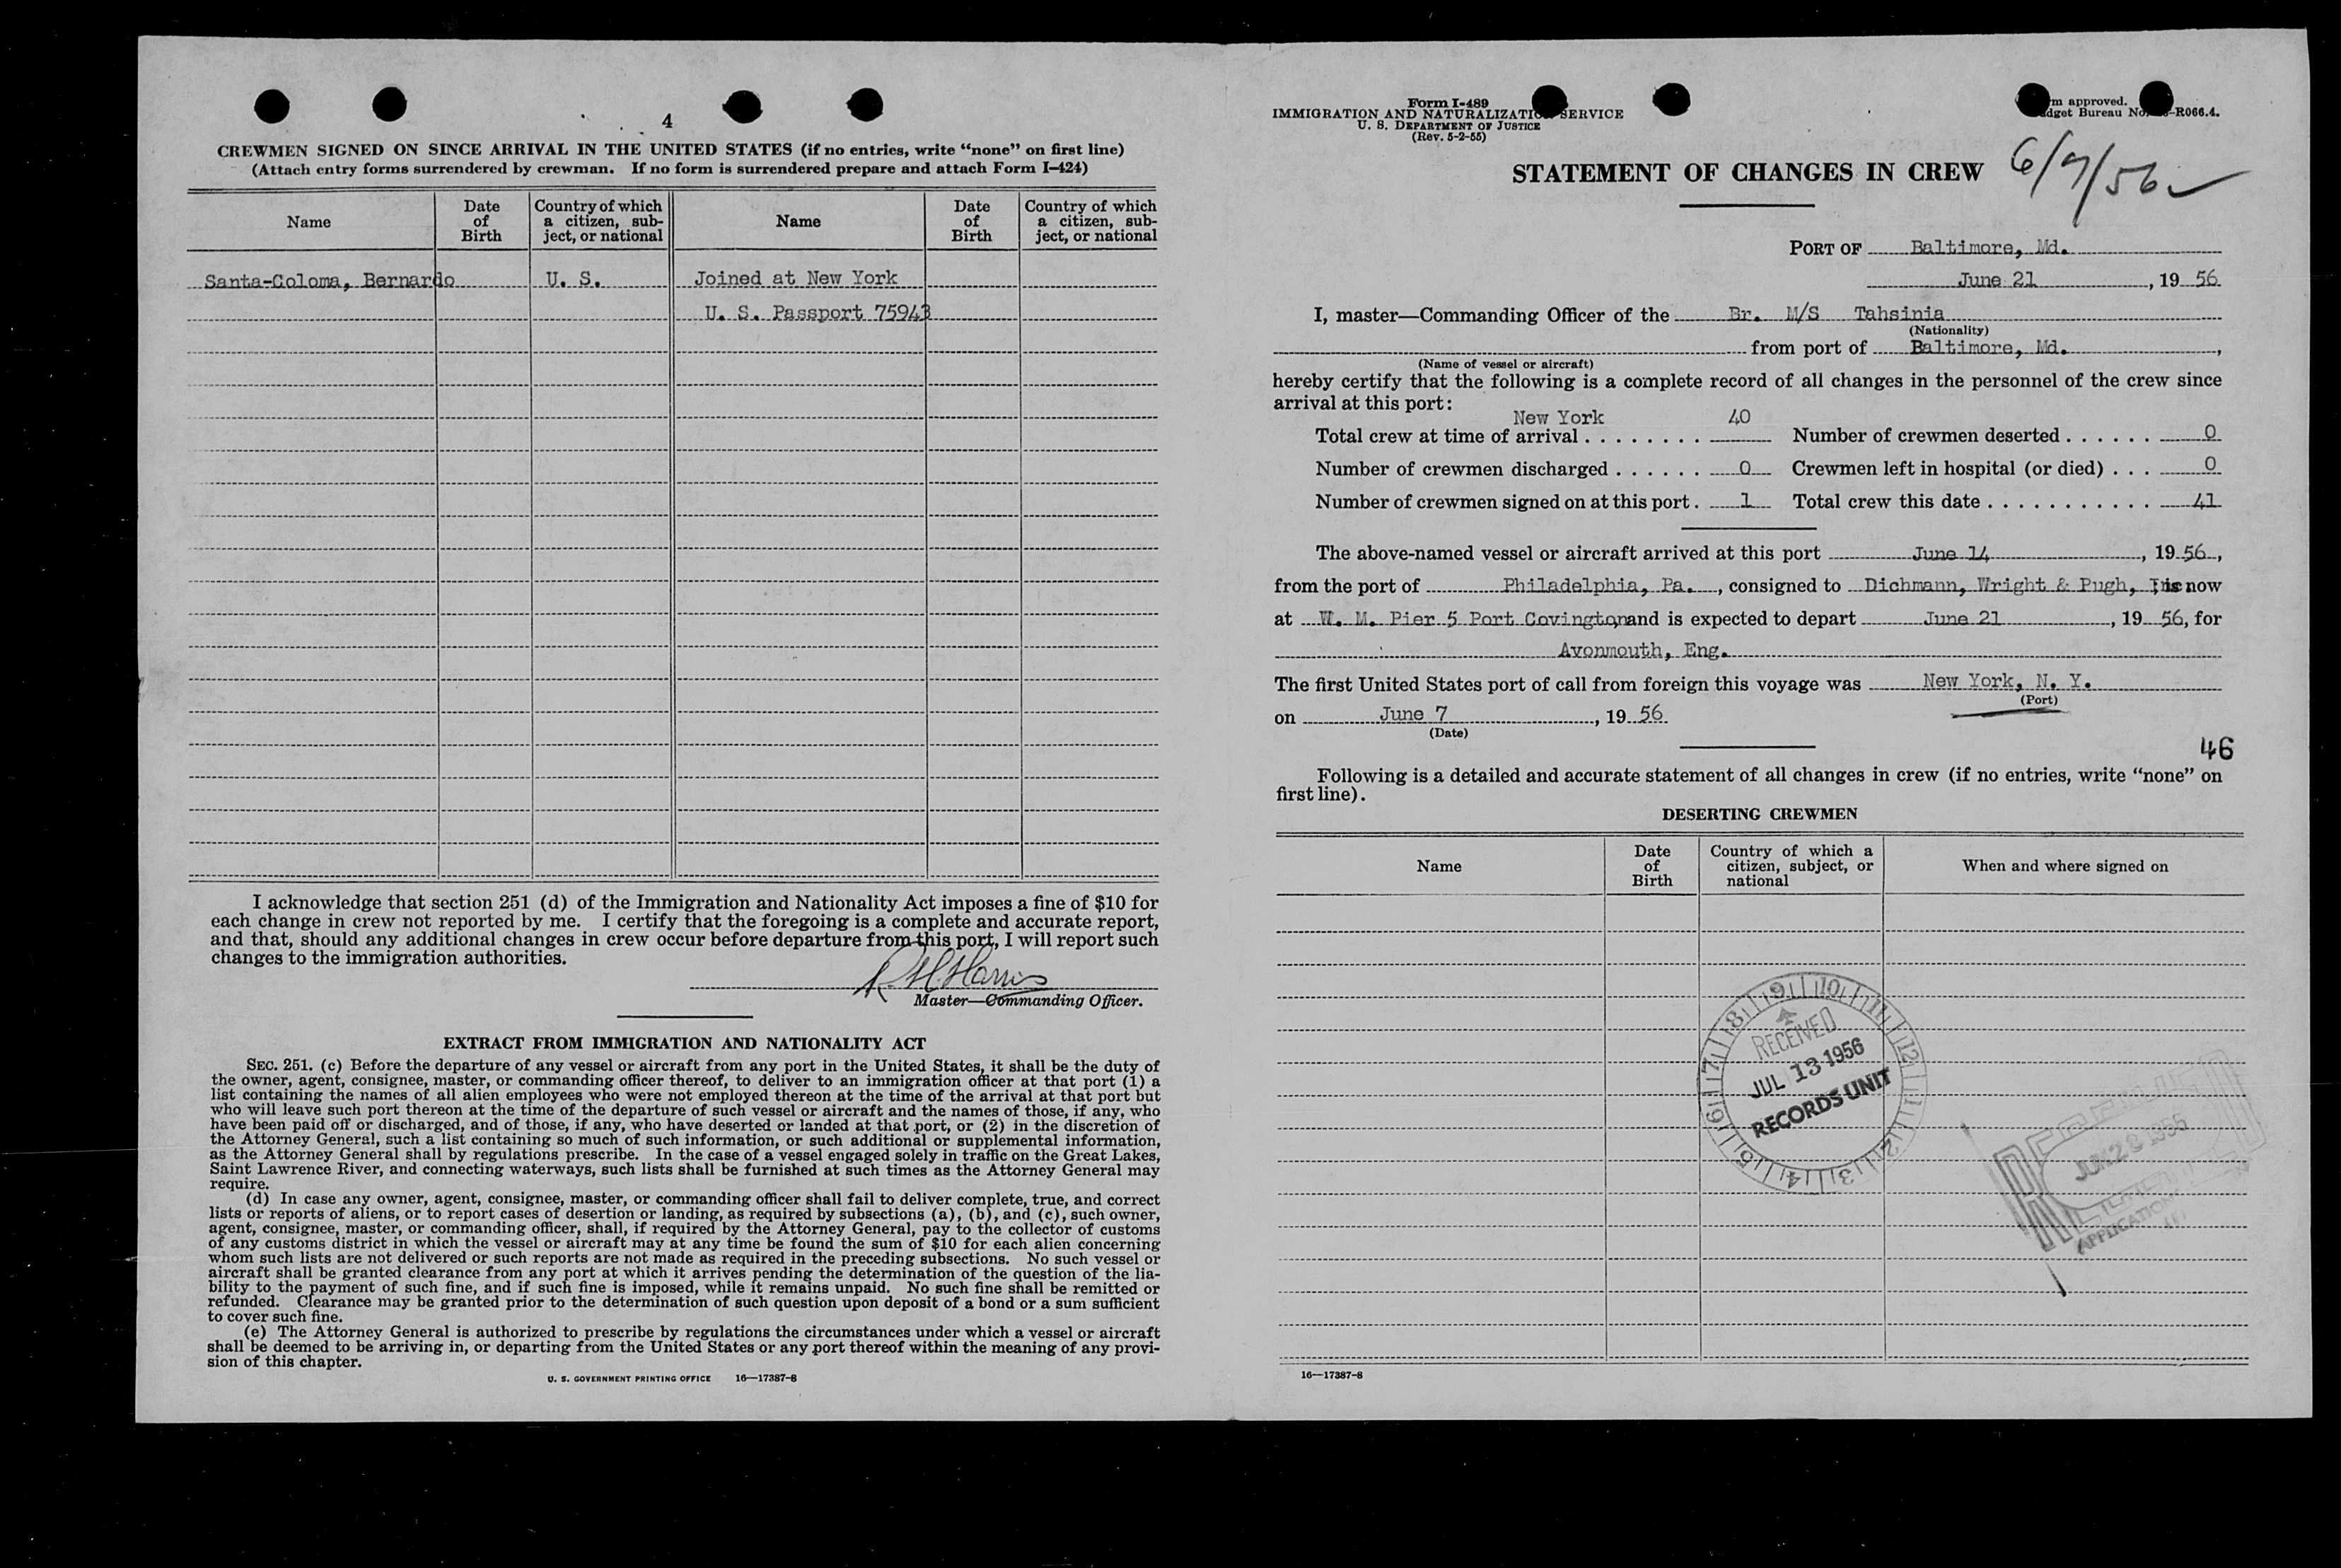 4
CREWMEN SIGNED ON SINCE ARRIVAL IN THE UNITED STATES (if no entries, write “none” on first line)
(Attach entry forms surrendered by crewman. If no form is surrendered prepare and attach Form I–424)
Name Date of Birth Country of which a citizen, subject, or national Name Date of Birth Country of which a citizen, subject, or national
Santa-Coloma, Bernardo U. S. Joined at New York
U. S. Passport 75943
I acknowledge that section 251 (d) of the Immigration and Nationality Act imposes a fine of $10 for
each change in crew not reported by me. I certify that the foregoing is a complete and accurate report,
and that, should any additional changes in crew occur before departure from this port, I will report such
changes to the immigration authorities.
R. H. Harris
Master—Commanding Officer.
EXTRACT FROM IMMIGRATION AND NATIONALITY ACT
SEC. 251. (c) Before the departure of any vessel or aircraft from any port in the United States, it shall be the duty of
the owner, agent, consignee, master, or commanding officer thereof, to deliver to an immigration officer at that port (1) a
list containing the names of all alien employees who were not employed thereon at the time of the arrival at that port but
who will leave such port thereon at the time of the departure of such vessel or aircraft and the names of those, if any, who
have been paid off or discharged, and of those, if any, who have deserted or landed at that port, or (2) in the discretion of
the Attorney General, such a list containing so much of such information, or such additional or supplemental information,
as the Attorney General shall by regulations prescribe. In the case of a vessel engaged solely in traffic on the Great Lakes,
Saint Lawrence River, and connecting waterways, such lists shall be furnished at such times as the Attorney General may
require.
(d) In case any owner, agent, consignee, master, or commanding officer shall fail to deliver complete, true, and correct
lists or reports of aliens, or to report cases of desertion or landing, as required by subsections (a), (b), and (c), such owner,
agent, consignee, master, or commanding officer, shall, if required by the Attorney General, pay to the collector of customs
of any customs district in which the vessel or aircraft may at any time be found the sum of $10 for each alien concerning
whom such lists are not delivered or such reports are not made as required in the preceding subsections. No such vessel or
aircraft shall be granted clearance from any port at which it arrives pending the determination of the question of the lia-
bility to the payment of such fine, and if such fine is imposed, while it remains unpaid. No such fine shall be remitted or
refunded. Clearance may be granted prior to the determination of such question upon deposit of a bond or a sum sufficient
to cover such fine.
(e) The Attorney General is authorized to prescribe by regulations the circumstances under which a vessel or aircraft
shall be deemed to be arriving in, or departing from the United States or any port thereof within the meaning of any provi-
sion of this chapter.
U. S. GOVERNMENT PRINTING OFFICE 16—17387-8
Form I-489
IMMIGRATION AND NATURALIZATION SERVICE
U. S. DEPARTMENT OF JUSTICE
(Rev. 5-2-55)
m approved.
dget Bureau No. -R066.4.
STATEMENT OF CHANGES IN CREW 6/7/56
PORT OF Baltimore, Md.
June 21, 19 56
I, master—Commanding Officer of the Br. M/S Tahsinia
(Nationality)
from port of Baltimore, Md.,
(Name of vessel or aircraft)
hereby certify that the following is a complete record of all changes in the personnel of the crew since
arrival at this port:
New York 40
Total crew at time of arrival Number of crewmen deserted 0
Number of crewmen discharged 0 Crewmen left in hospital (or died) 0
Number of crewmen signed on at this port. 1 Total crew this date 41
The above-named vessel or aircraft arrived at this port June 14, 19 56,
from the port of Philadelphia, Pa., consigned to Dichmann, Wright & Pugh, is now
at W. M. Pier 5 Port Covington and is expected to depart June 21, 19 56, for
Avonmouth, Eng.
The first United States port of call from foreign this voyage was New York, N. Y.
(Port)
on June 7, 19 56
(Date)
46
Following is a detailed and accurate statement of all changes in crew (if no entries, write “none” on
first line).
DESERTING CREWMEN
Name Date of Birth Country of which a citizen, subject, or national When and where signed on
9 10 11 12 1 2 3 4 5 6 7 8
RECEIVED
JUL 13 1956
RECORDS UNIT
RECEIVED
16—17387-8